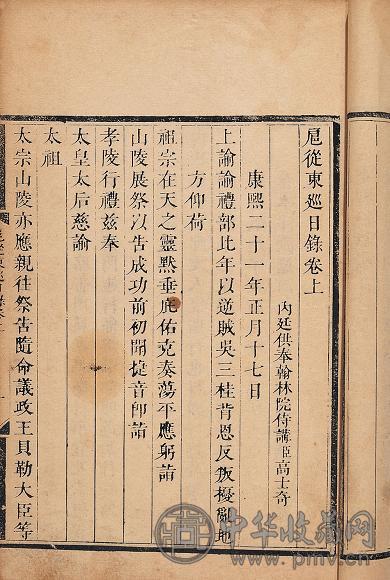 扈從東巡日錄卷上
內廷供奉翰林院侍講臣高士奇
康熙二十一年正月十七日
上諭諭禮部比年以逆賊吳三桂背恩反叛擾亂地
方仰荷
祖宗在天之靈默垂庇佑克奏蕩平應躬詣
山陵展祭以告成功前初聞捷音即詣
孝陵行禮茲奉
太皇太后慈諭
太祖
太宗山陵亦應親往祭告隨命議政王貝勒大臣等
中华收藏网
www.pmv.cn